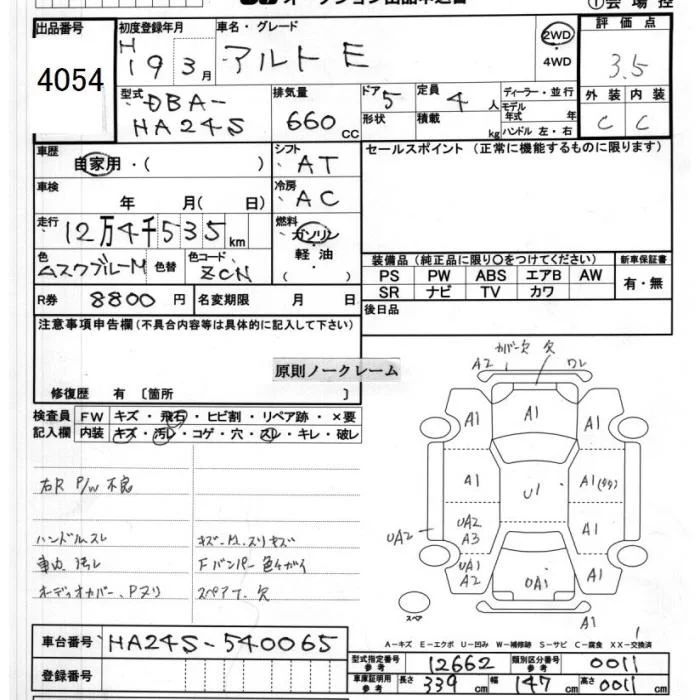 ①会場控
出品番号
4054
初度登録年月
H 19 3月
車名・グレード
アルト E
2WD
・
4WD
評価点
3.5
外装 内装
C C
型式
DBA-
HA24S
排気量
660 CC
ドア 5
形状
定員 4 人
積載 kg
ディーラー・並行
モデル年式 年
ハンドル 左・右
車歴
自家用・( )
シフト
AT
セールスポイント (正常に機能するものに限ります)
車検
年 月( 日)
冷房
AC
走行
12万4千535km
燃料
ガソリン
軽油
・
( )
色
ムスクブルーM
色替
色コード
ZCN
装備品(純正品に限り○をつけてください)
PS PW ABS エアB AW
SR ナビ TV カワ
新車保証書
有・無
R券 8800 円
名変期限 月 日
後日品
注意事項申告欄(不具合内容等は具体的に記入して下さい)
原則ノークレーム
修復歴 有 〔箇所 〕
検査員記入欄
FW キズ・飛石・ヒビ割・リペア跡・×要
内装 キズ・汚レ・コゲ・穴・スレ・キレ・破レ
右R P/W 不良
ハンドルスレ
車内 汚レ
キズ・M.スリキズ
Fバンパー色チガイ
スペアT.欠
カバー欠 欠
A2 ワレ
A1 A1 A1
A1 U1 A1
UA2 UA2
A3
A1
UA1
A2
UA1 A1
スペア
A1
A-キズ E-エクボ U-凹み W-補修跡 S-サビ C-腐食 XX-交換済
車台番号 HA24S-540065
登録番号
型式指定番号 参考 12662
類別区分番号 参考 0011
車庫証明用 参考 長さ 339 cm 幅 147 cm 高さ 0011 cm